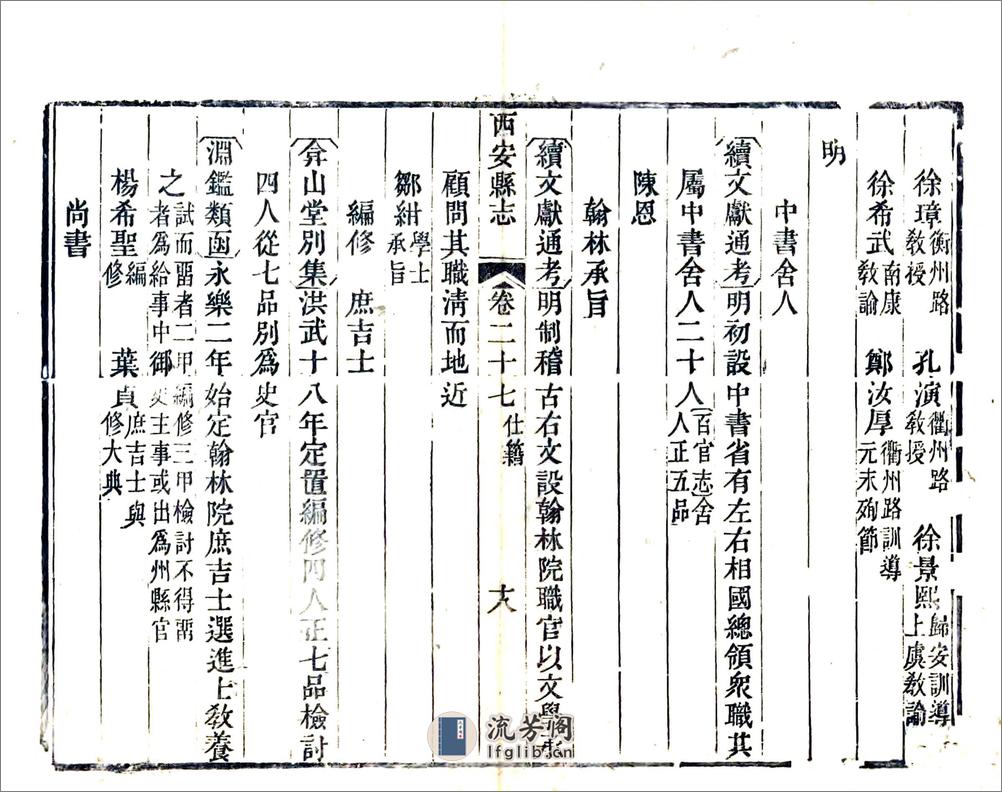 徐璋衢州路教授　孔演衢州路教授　徐景熙歸安訓導上虞教諭
徐希武南康教諭　鄭汝厚衢州路訓導元末殉節
明
中書舍人
續文獻通考明初設中書省有左右相國總領衆職其
屬中書舍人二十人百官志舍人正五品
陳恩
翰林承旨
續文獻通考明制稽古右文設翰林院職官以文學
西安縣志　卷二十七　仕籍　十八
顧問其職清而地近
鄒紺學士承旨
編修　庶吉士
弇山堂別集洪武十八年定置編修四人正七品檢討
四人從七品別爲史官
淵鑑類函永樂二年始定翰林院庶吉士選進士教養
之試而畱者二甲編修三甲檢討不得畱者爲給事中御史主事或出爲州縣官
楊希聖編修　葉貞庶吉士與修大典
尚書
流芳閣
lfglib.com